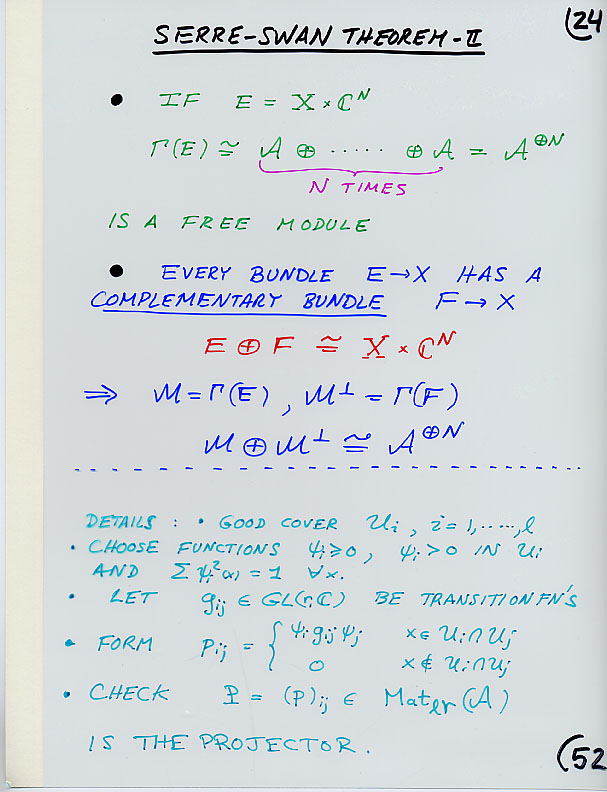 (24
SERRE-SWAN THEOREM-II
• IF E = X × ℂᴺ
Γ(E) ≅ A ⊕ ····· ⊕ A = A^{⊕N}
N TIMES
IS A FREE MODULE
• EVERY BUNDLE E→X HAS A
COMPLEMENTARY BUNDLE F → X
E ⊕ F ≅ X × ℂᴺ
⇒ M = Γ(E), M^⊥ = Γ(F)
M ⊕ M^⊥ ≅ A^{⊕N}
DETAILS : • GOOD COVER U_i, i = 1,·····,l
• CHOOSE FUNCTIONS ψ_i ≥ 0, ψ_i > 0 IN U_i
AND Σ ψ_i²(x) = 1 ∀x.
• LET g_ij ∈ GL(r,ℂ) BE TRANSITION FN'S
• FORM P_ij = { ψ_i g_ij ψ_j x ∈ U_i ∩ U_j
0 x ∉ U_i ∩ U_j
• CHECK P = (P)_ij ∈ Mat_{lr}(A)
IS THE PROJECTOR.
(52